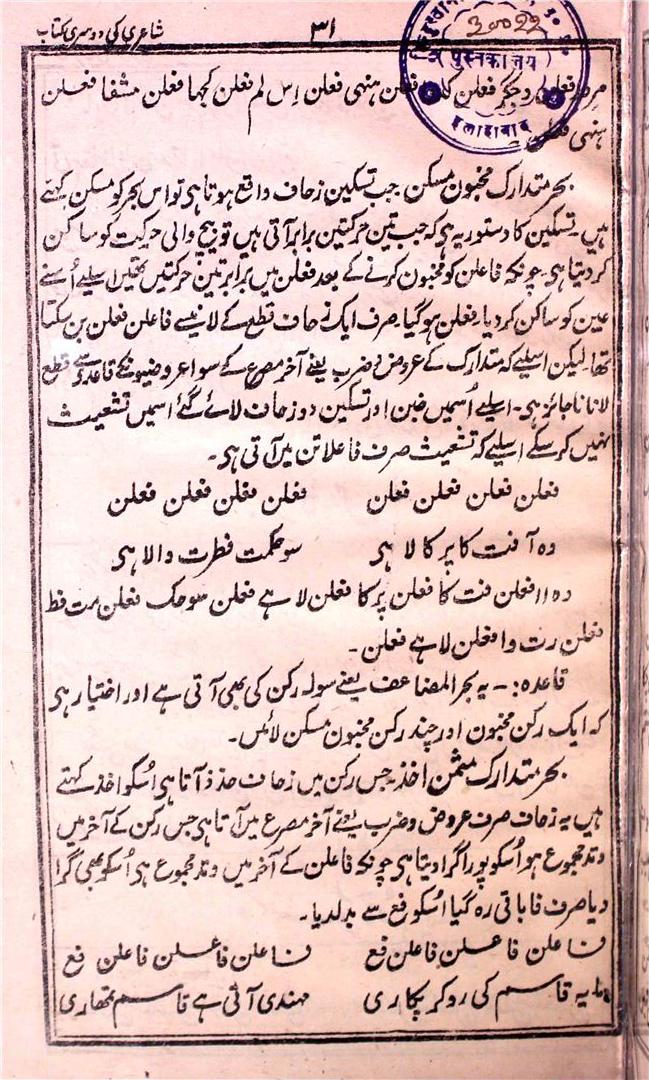 شاعری کی دوسری کتاب
۳۱
30022
पुस्तकालय
इलाहाबाद
فعلن ہنہی فعلن اِس لم فعلن کچھا فعلن مشفا فعلن
ہنہی
بحر متدارک مخبون مسکن جب تسکین زحاف واقع ہوتا ہی تو اس بحر کو مسکن کہتے
ہیں۔ تسکین کا دستور یہ ہی کہ جب تین حرکتیں برابر آتی ہیں تو بیچ والی حرکت کو ساکن
کر دیتا ہی۔ چونکہ فاعلن کو مخبون کرنے کے بعد فعلن میں برابر تین حرکتیں تھیں اسلیے اُسنے
عین کو ساکن کر دیا۔ فعلن ہو گیا۔ صرف ایک زحاف قطع کے لانیسے فاعلن فعلن بن سکتا
تھا۔ لیکن اسلیے کہ متدارک کے عروض و ضرب یعنے آخر مصرع کے سوا عروضیونکے قاعدہ سے قطع
لانا ناجائز ہی۔ اسلیے اُسمیں خبن اور تسکین دو زحاف لائے گئے اسمیں تشعیث
نہیں کر سکے اسلیے کہ تشعیث صرف فاعلاتن میں آتی ہی۔
فعلن فعلن فعلن فعلن فعلن فعلن فعلن فعلن
وہ آفت کا پر کالا ہی سو حکمت فطرت والا ہی
وہ اا فعلن فت کا فعلن پر کا فعلن لا ہے فعلن سو حک فعلن مت فط
فعلن رت وا فعلن لا ہے فعلن۔
قاعدہ:۔ یہ بحر المضاعف یعنے سولہ رکن کی بھی آتی ہے اور اختیار ہی
کہ ایک رکن مخبون اور چند رکن مخبون مسکن لائیں۔
بحر متدارک مثمن احذ۔ جس رکن میں زحاف حذذ آتا ہی اُسکو احذ کہتے
ہیں یہ زحاف صرف عروض و ضرب یعنے آخر مصرع میں آتا ہی جس رکن کے آخر میں
وتد مجموع ہو اُسکو پورا گرا دیتا ہی چونکہ فاعلن کے آخر میں وتد مجموع ہی اُسکو بھی گرا
دیا صرف فا باقی رہ گیا اُسکو فع سے بدلدیا۔
فاعلن فاعلن فاعلن فع فاعلن فاعلن فاعلن فع
یہ قاسم کی رو کر پکاری مہندی آئی ہے قاسم تمھاری